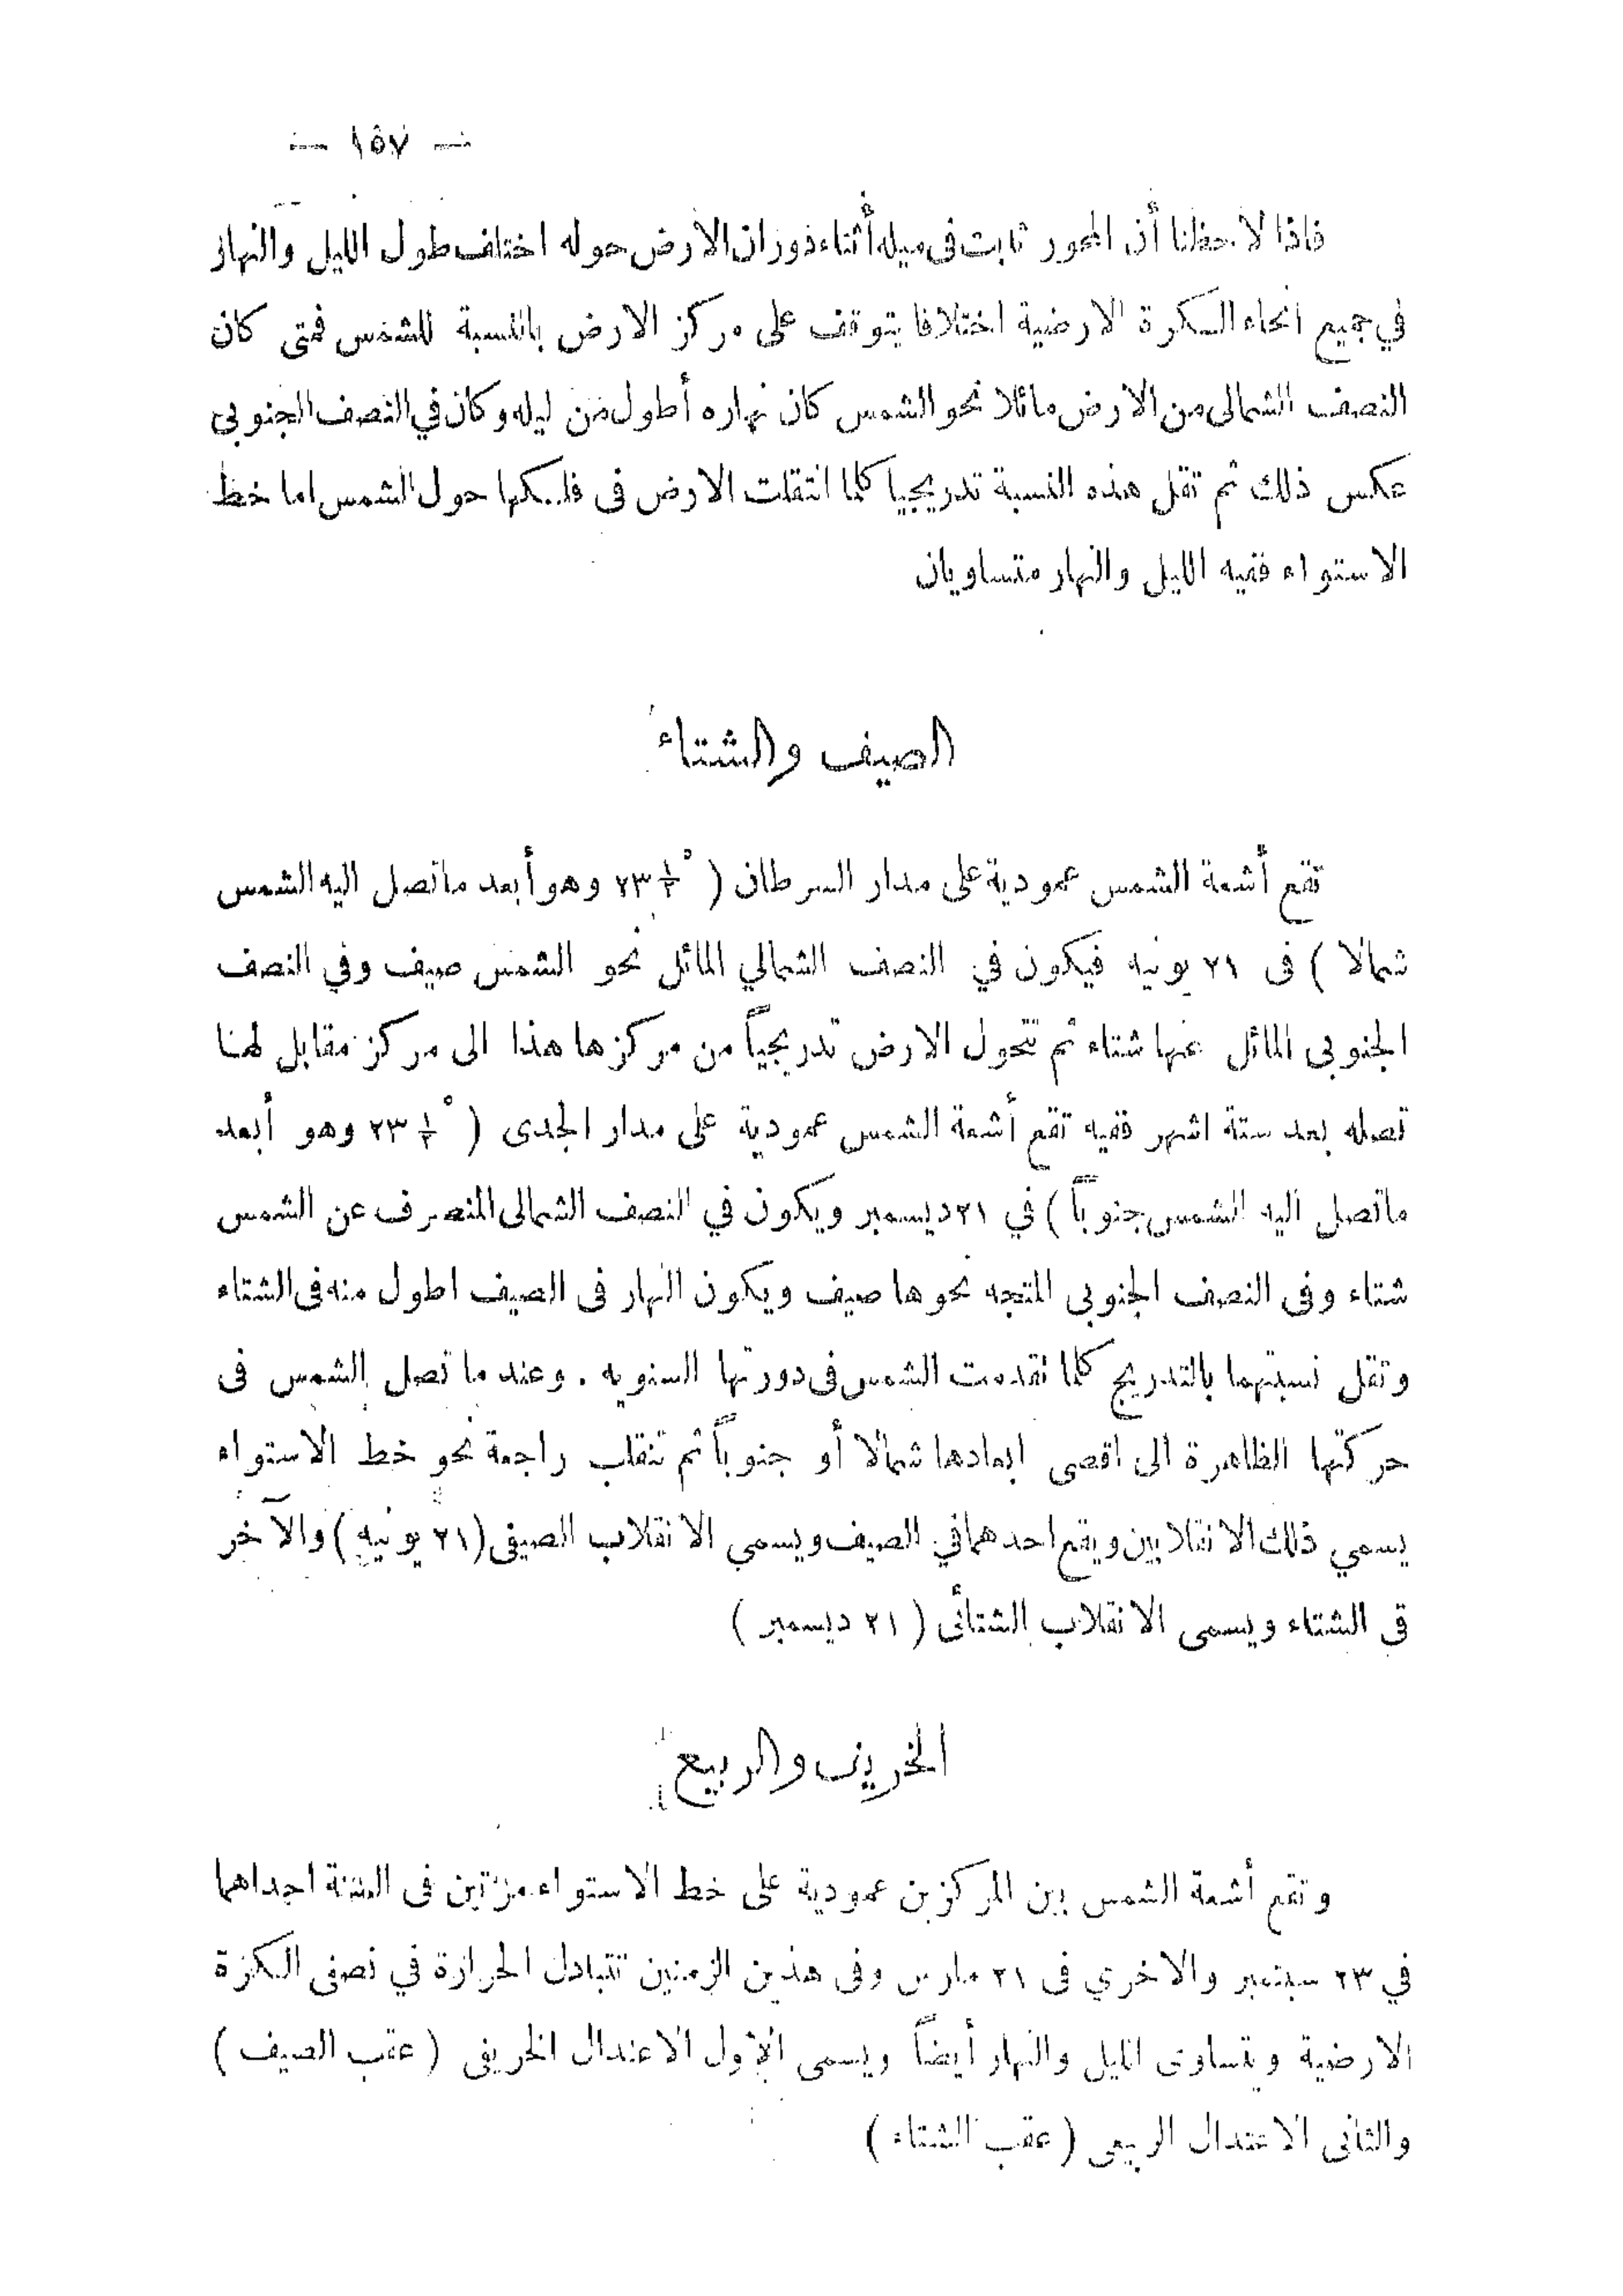 — ١٥٧ —
فاذا لاحظنا أن المحور ثابت فى ميله أثناء دوران الارض حوله اختلف طول الليل والنهار
في جميع أنحاء الكرة الارضية اختلافا يتوقف على مركز الارض بالنسبة للشمس فمتى كان
النصف الشمالى من الارض مائلا نحو الشمس كان نهاره أطول من ليله وكان في النصف الجنوبى
عكس ذلك ثم تقل هذه النسبة تدريجيا كلما انتقلت الارض فى فلكها حول الشمس اما خط
الاستواء ففيه الليل والنهار متساويان
الصيف والشتاء
تقع أشعة الشمس عمودية على مدار السرطان ( ½ ٢٣° وهو أبعد ماتصل اليه الشمس
شمالا ) فى ٢١ يونيه فيكون في النصف الشمالي المائل نحو الشمس صيف وفي النصف
الجنوبى المائل عنها شتاء ثم تتحول الارض تدريجياً من مركزها هذا الى مركز مقابل لهنا
تصله بعد ستة اشهر ففيه تقع أشعة الشمس عمودية على مدار الجدى ( ½ ٢٣° وهو أبعد
ماتصل اليه الشمس جنوباً ) في ٢١ ديسمبر ويكون في النصف الشمالى المنصرف عن الشمس
شتاء وفى النصف الجنوبى المتجه نحوها صيف ويكون النهار فى الصيف اطول منه فى الشتاء
وتقل نسبتهما بالتدريج كلما تقدمت الشمس فى دورتها السنويه . وعند ما تصل الشمس فى
حركتها الظاهرة الى اقصى ابعادها شمالا أو جنوباً ثم تنقلب راجعة نحو خط الاستواء
يسمي ذلك الانقلابين ويقع احدهما في الصيف ويسمي الانقلاب الصيفى (٢١ يونيه ) والآخر
فى الشتاء ويسمى الانقلاب الشتائى ( ٢١ ديسمبر )
الخريف والربيع
وتقع أشعة الشمس بين المركزين عمودية على خط الاستواء مرتين فى السنة احداهما
في ٢٣ سبتمبر والاخري فى ٢١ مارس وفى هذين الزمنين تتبادل الحرارة في نصفى الكرة
الارضية ويتساوى الليل والنهار أيضاً ويسمى الاول الاعتدال الخريفى ( عقب الصيف )
والثانى الاعتدال الربيعى ( عقب الشتاء )